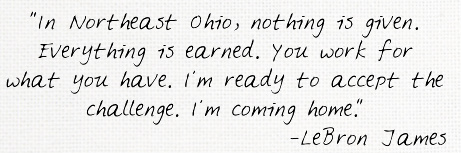 "In Northeast Ohio, nothing is given.
Everything is earned. You work for
what you have. I'm ready to accept the
challenge. I'm coming home."
-LeBron James